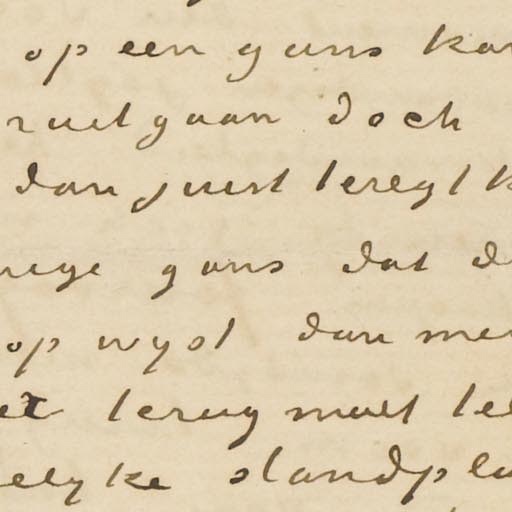 op een guns kan
ruit gaan doch
dan juist teregt k
gans dat d
op wyst dan men
terug moet te
elyke standpla